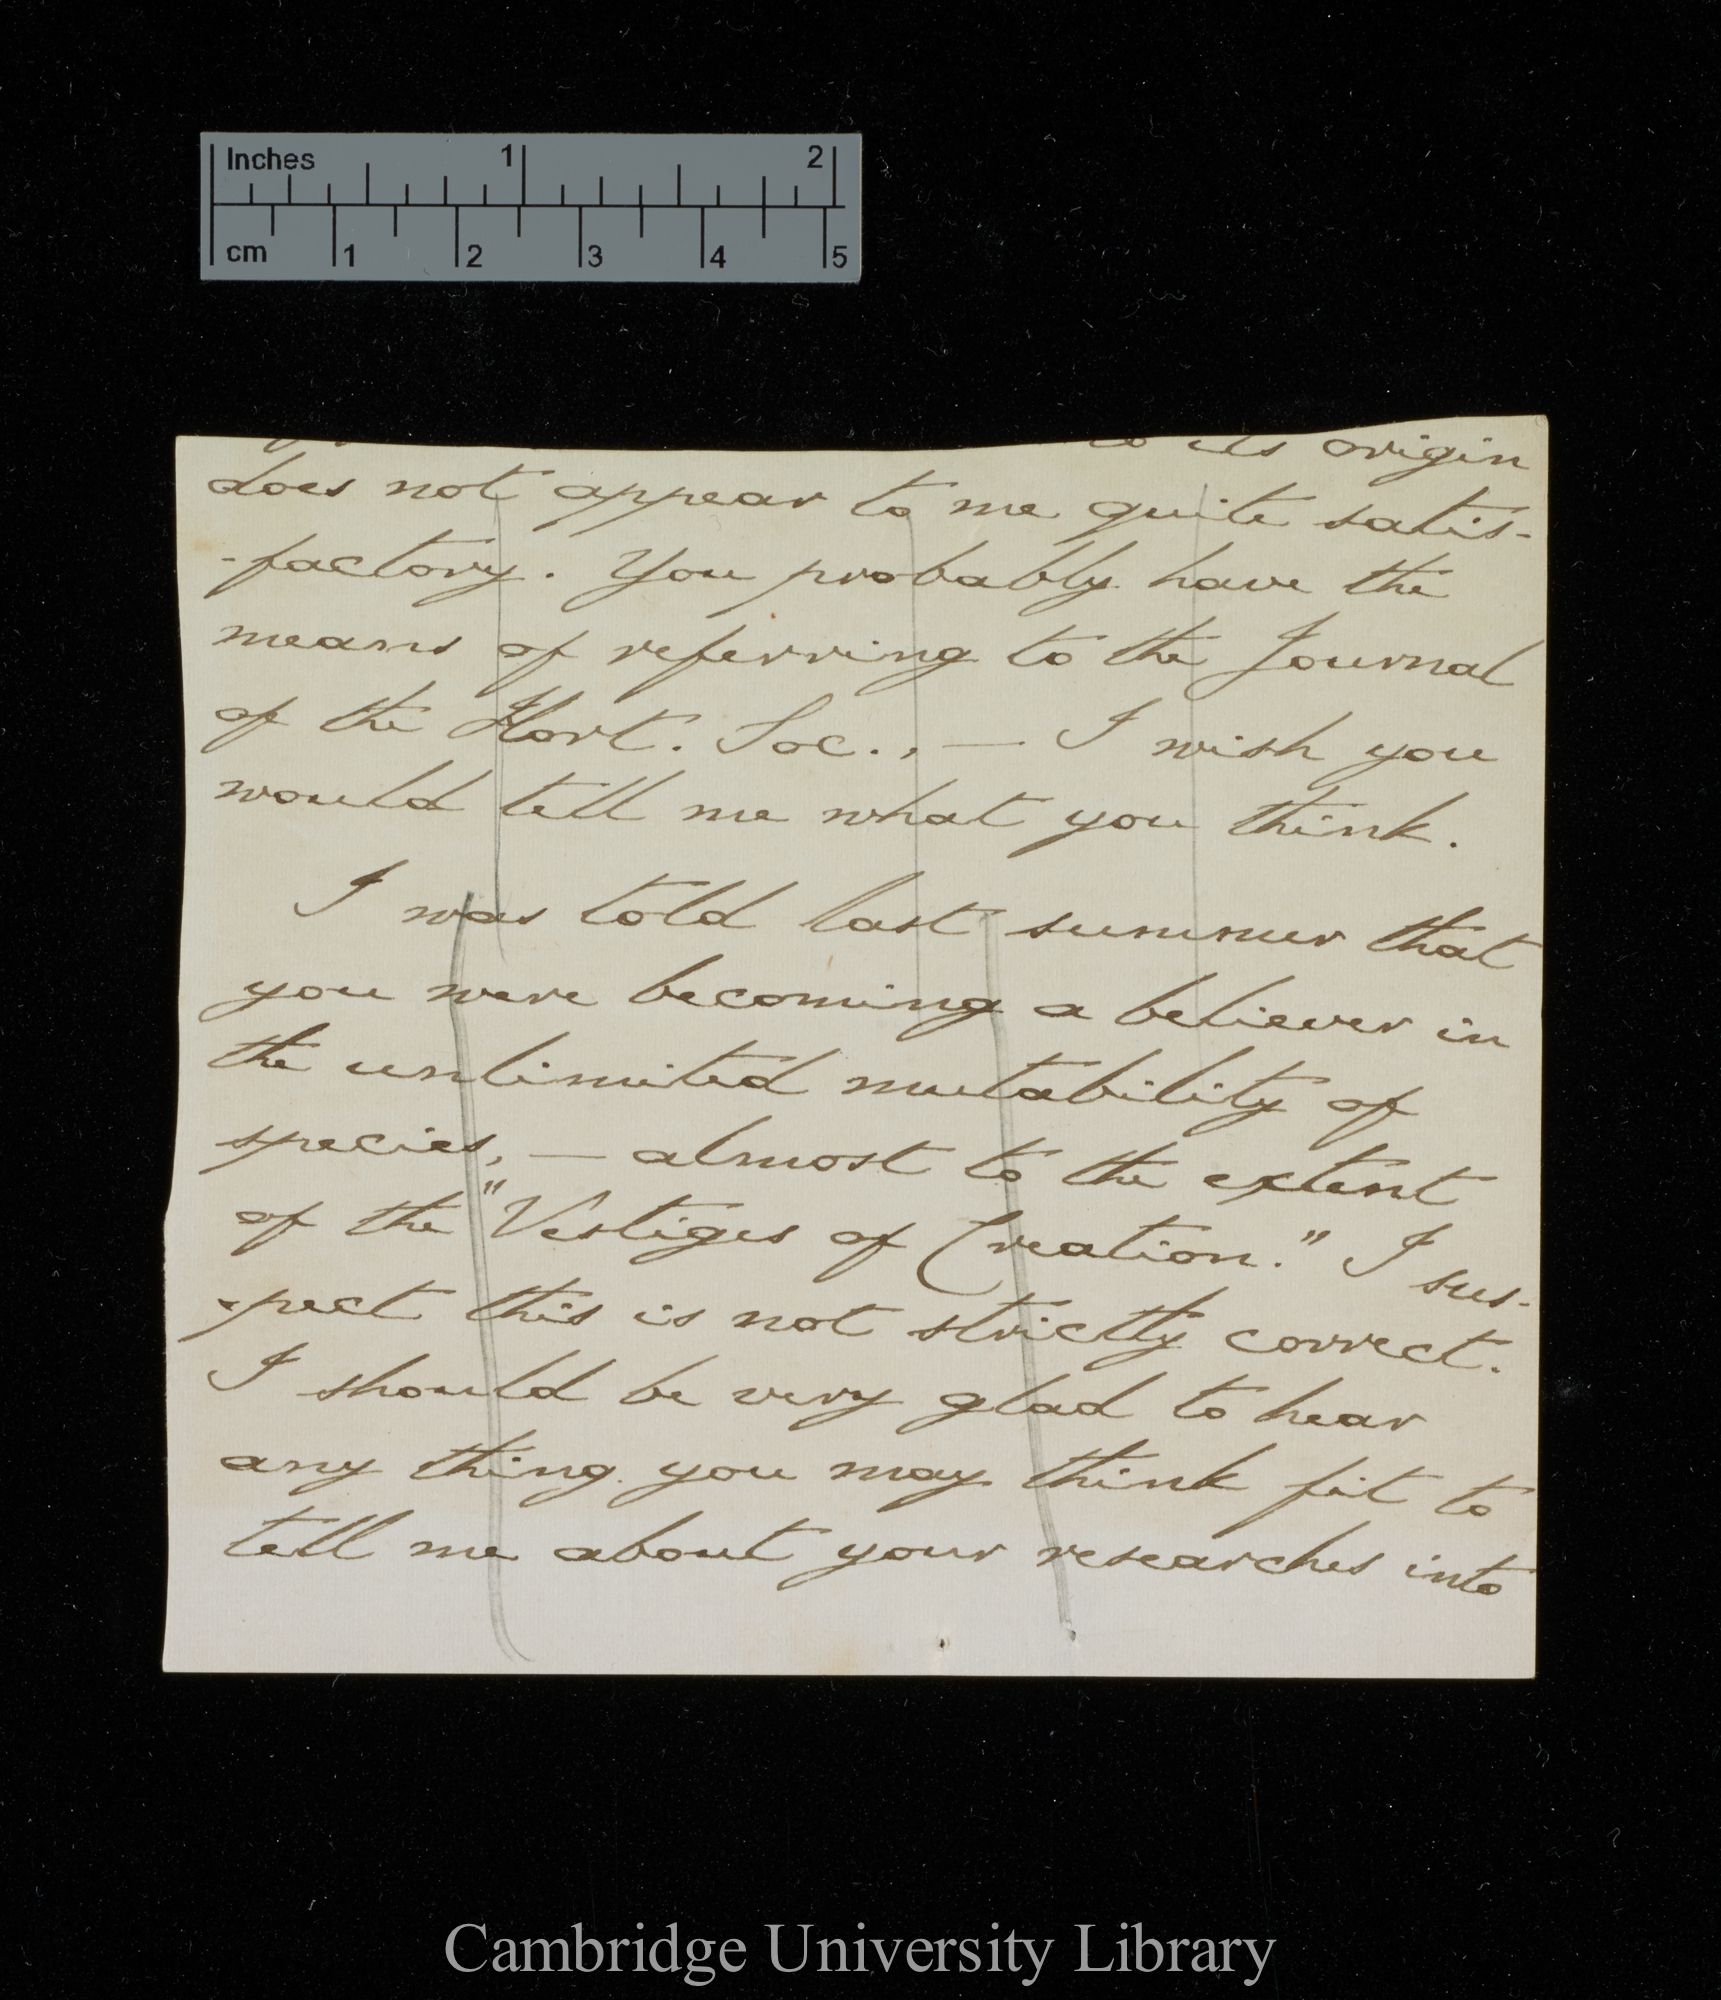 Inches 1 2
cm 1 2 3 4 5
to its origin
does not appear to me quite satis-
-factory. You probably have the
means of referring to the Journal
of the Hort. Soc., — I wish you
would tell me what you think.
I was told last summer that
you were becoming a believer in
the unlimited mutability of
species, — almost to the extent
of the "Vestiges of Creation." I sus-
-pect this is not strictly correct.
I should be very glad to hear
any thing you may think fit to
tell me about your researches into
Cambridge University Library